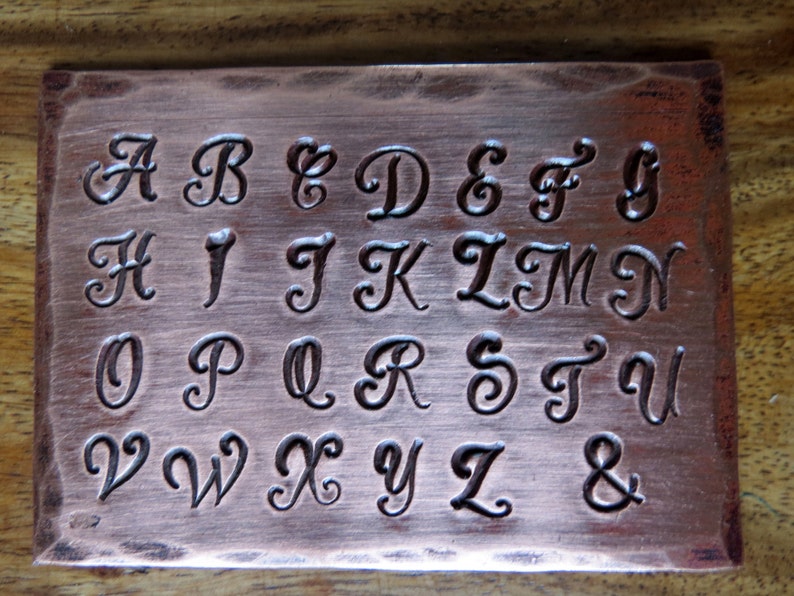 A B C D E F G
H I J K L M N
O P Q R S T U
V W X Y Z &